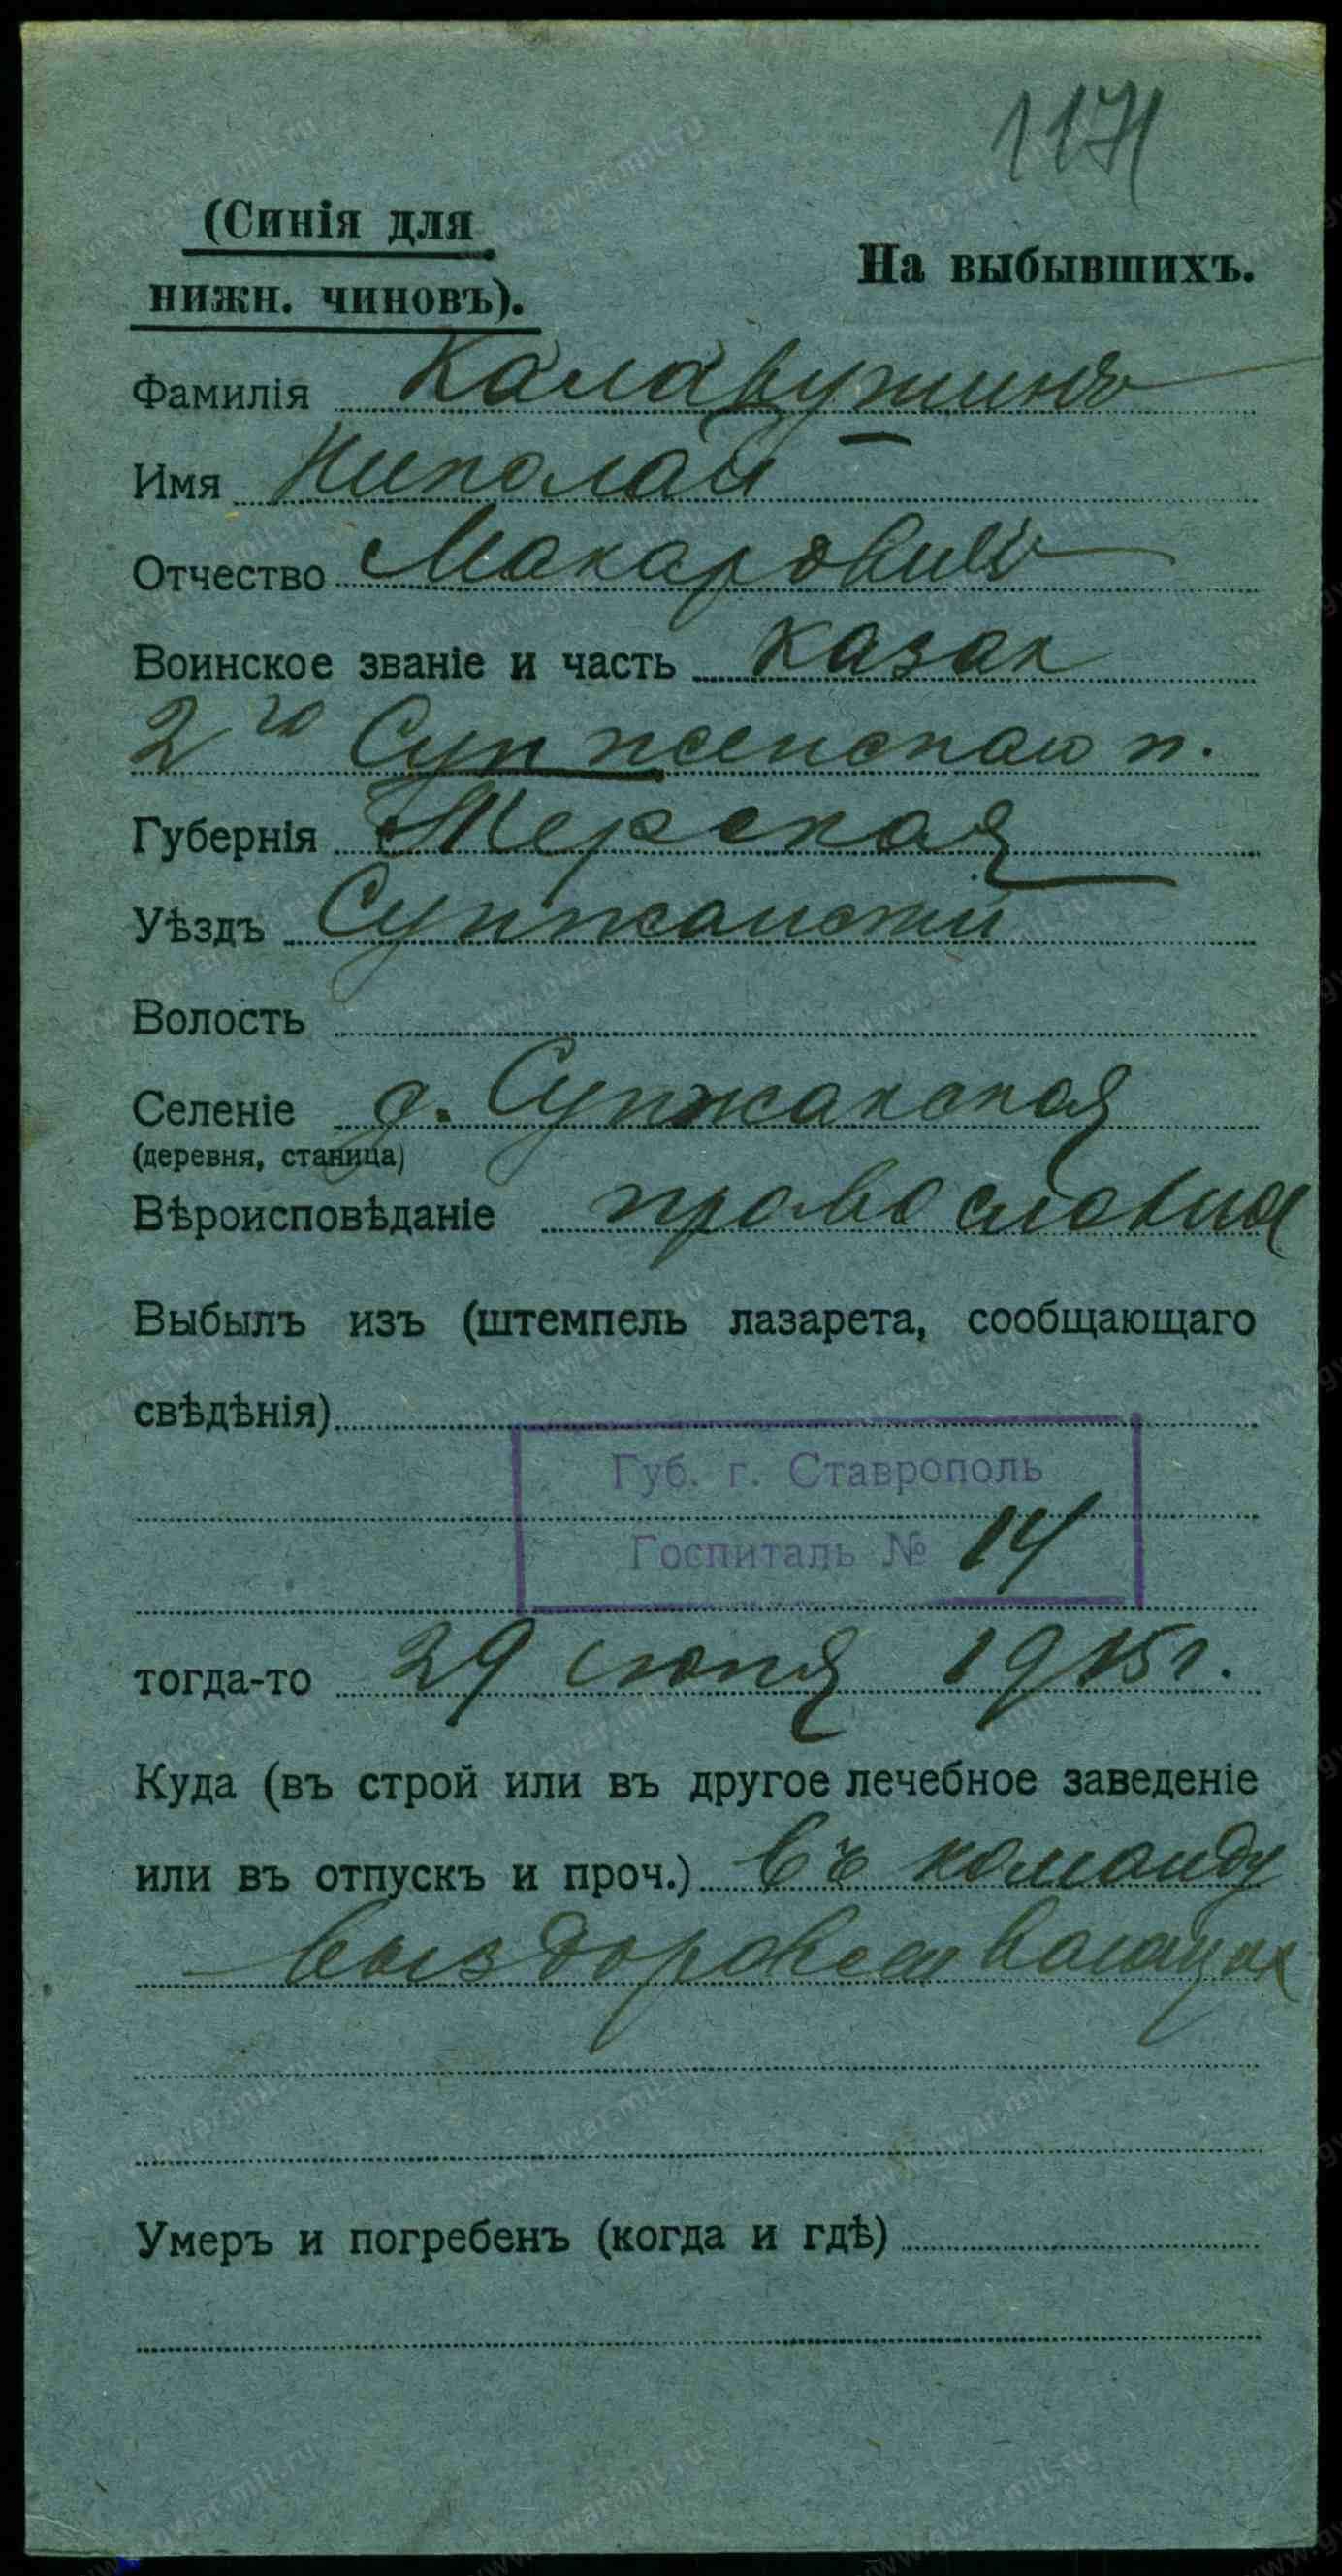 1171
(Синія для
нижн. чиновъ).
На выбывшихъ.
Фамилія Калабужинъ
Имя Николай
Отчество Макаровичъ
Воинское званіе и часть казак
2го Сунженскаго п.
Губернія Терская
Уѣздъ Сунжанский
Волость
Селеніе д. Сунжанская
(деревня, станица)
Вѣроисповѣданіе православная
Выбылъ изъ (штемпель лазарета, сообщающаго
свѣдѣнія)
Губ. г. Ставрополь
Госпиталь № 14
тогда-то 29 июня 1915 г.
Куда (въ строй или въ другое лечебное заведеніе
или въ отпускъ и проч.) въ команду
выздоравливающих
Умеръ и погребенъ (когда и гдѣ)